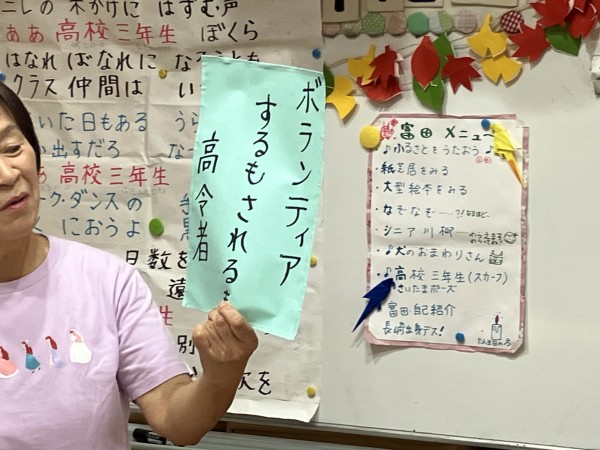 ニレの木かげに はずむ声
ああ 高校三年生 ぼくら
はなれ ばなれに な
クラス 仲間は い
いた日もある うら
い出すだろ な
あ 高校三年生
ーク・ダンスの
におうよ
日数を
遠
別
次を
ボランティア
するもされるも
高令者
富田 メニュー
♪ふるさとをうたおう♪
・紙芝居をみる
・大型絵本をみる
・なぞなぞ
・シニア川柳
・♪犬のおまわりさん
・♪高校三年生(スカーフ)
さいたまポーズ
富田 自己紹介
長崎出身デス!